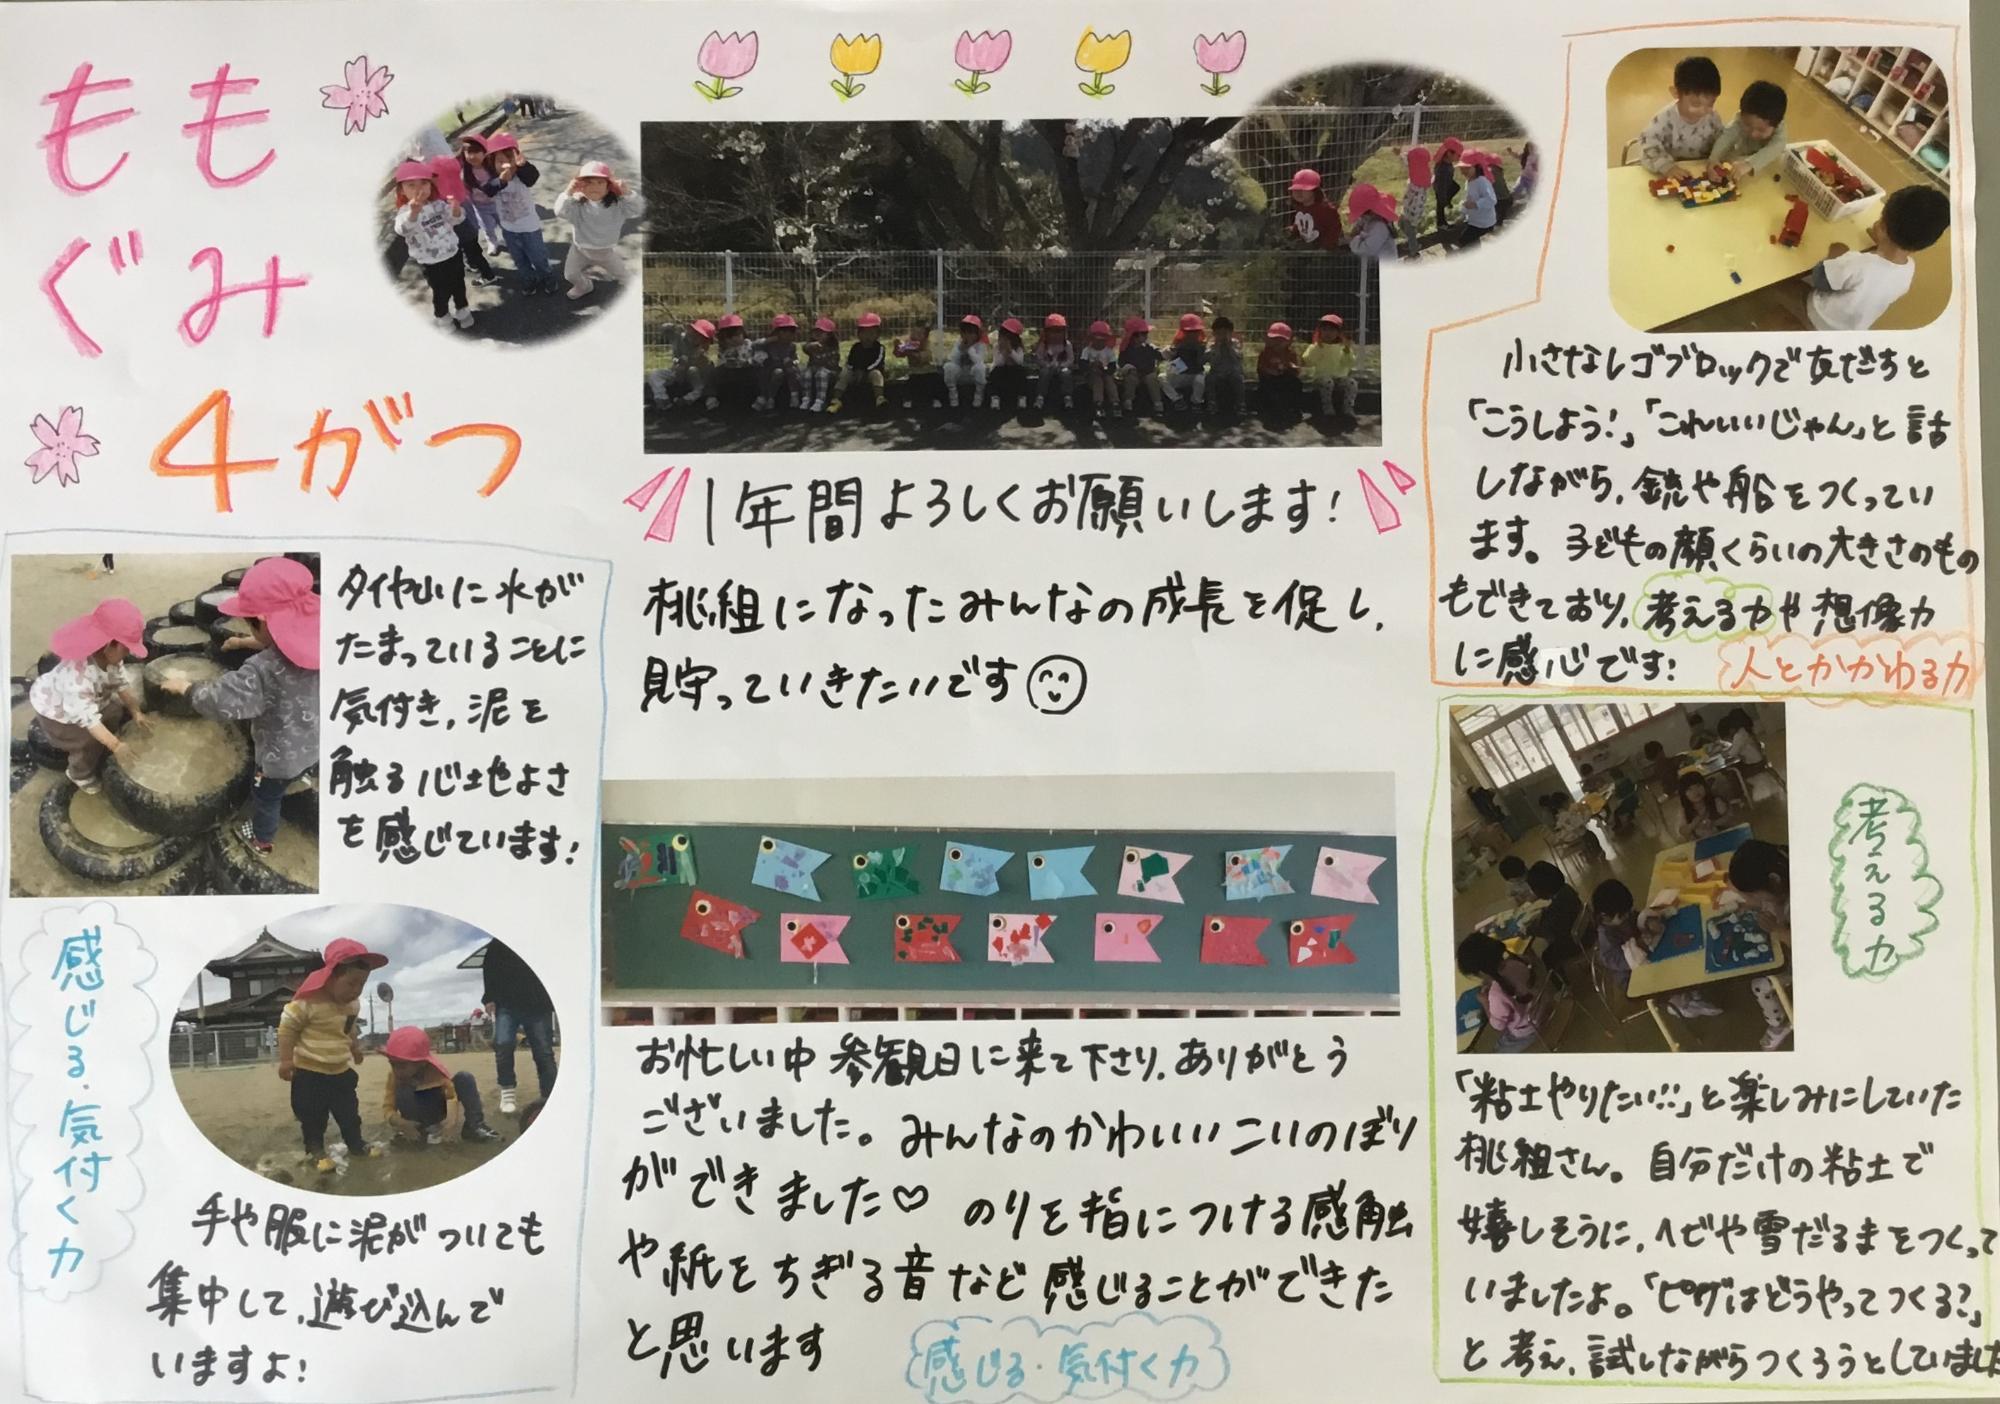 もも
ぐみ
4がつ
1年間よろしくお願いします!
桃組になったみんなの成長を促し、
見守っていきたいです
タイヤ山に水が
たまっていることに
気付き、泥を
触る心地よさ
を感じています!
感じる・気付く力
手や服に泥がついても
集中して、遊び込んで
いますよ!
お忙しい中 参観日に来て下さり、ありがとう
ございました。みんなのかわいいこいのぼり
ができました♡ のりを指につける感触
や紙をちぎる音など感じることができた
と思います
感じる・気付く力
小さなレゴブロックで友だちと
「こうしよう!」「これいいじゃん」と話
しながら、銃や船をつくってい
ます。子どもの顔くらいの大きさのもの
もできており、考える力や想像力
に感心です!
人とかかわる力
考える力
「粘土やりたい!!」と楽しみにしていた
桃組さん。自分だけの粘土で
嬉しそうに、ヘビや雪だるまをつくって
いましたよ。「ピザはどうやってつくる?」
と考え、試しながらつくろうとしていました